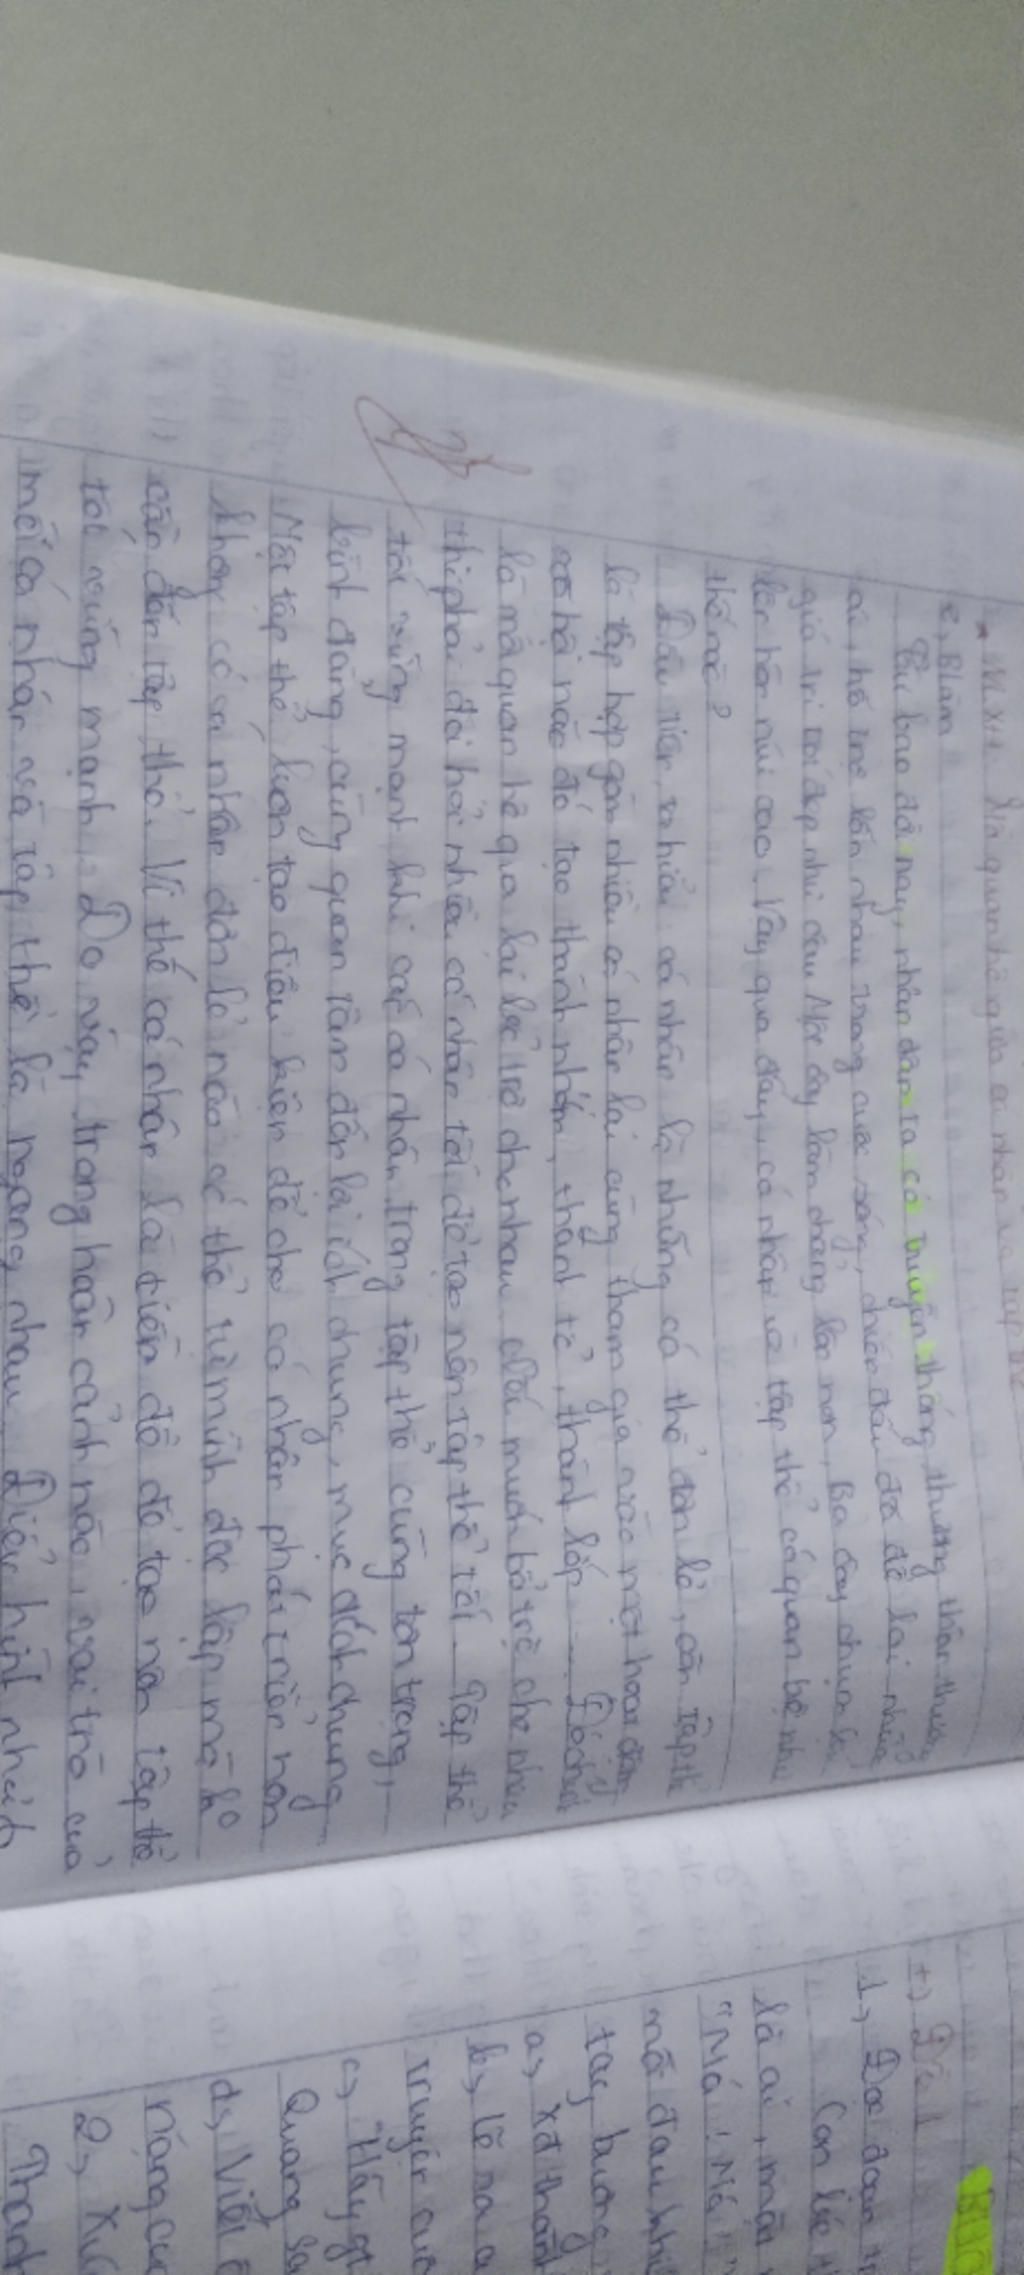 * N.xh: Mối quan hệ giữa cá nhân và tập thể
c, Bl làm
Từ bao đời nay, nhân dân ta có truyền thống thương thân thương
ái, hỗ trợ lẫn nhau trong cuộc sống, chiến đấu đã để lại những
giá trị tốt đẹp như câu Một cây làm chẳng lên non, Ba cây chụm lại
lên hòn núi cao. Vậy qua đây, cá nhân và tập thể có quan hệ như
thế nào?
Đầu tiên, ta hiểu cá nhân là những cá thể đơn lẻ, còn tập thể
là tập hợp gồm nhiều cá nhân lại cùng tham gia vào một hoạt động
xã hội nào đó tạo thành nhóm, thành tổ, thành lớp ..... Đó chính
là mối quan hệ qua lại hỗ trợ cho nhau. Nếu muốn bổ trợ cho nhau
thì phải đòi hỏi nhiều cá nhân tốt để tạo nên tập thể tốt. Tập thể
tốt vững mạnh khi các cá nhân trong tập thể cùng tôn trọng,
bình đẳng, cùng quan tâm đến lợi ích chung, mục đích chung
Một tập thể luôn tạo điều kiện để cho cá nhân phát triển nên
không có cá nhân đơn lẻ nào có thể tự mình độc lập mà ko
cần đến tập thể. Vì thế cá nhân là tiền đề để tạo nên tập thể
tốt vững mạnh. Do vậy, trong hoàn cảnh nào, vai trò của
mỗi cá nhân và tập thể là ngang nhau. Điển hình nhất
BHD
+) Đề 1
1, Đọc đoạn
Con bé
là ai, mặt
"Má! Má!"
nỗi đau khi
tay buông
a, Xđ thành
b, Vì sao
truyện
c, Hãy
Quang Sá
d, Viết
nặng
2,
Thanh